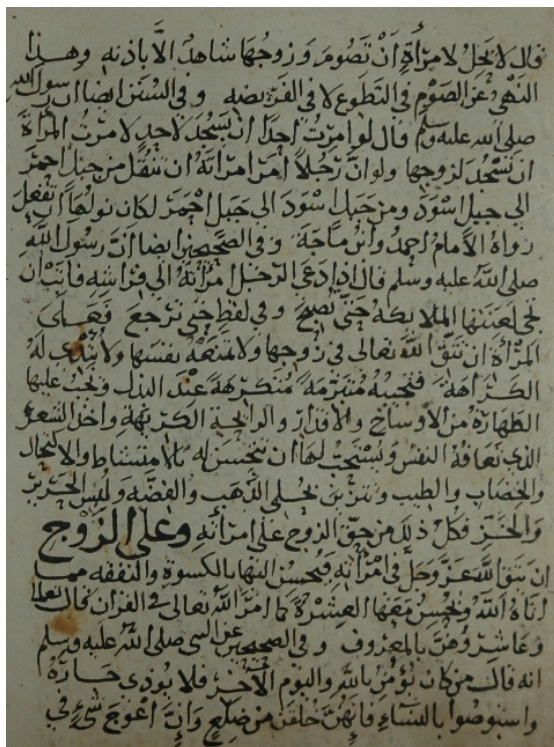 قال لا يحل لامرأة ان تصوم وزوجها شاهد الا باذنه وهذا
النهي عن الصوم في التطوع لا في الفريضه وفي السنن ايضا ان رسول الله
صلى الله عليه وسلم قال لو امرت احدا ان يسجد لاحد لامرت المرأة
ان تسجد لزوجها ولو ان رجلا أمر امراته ان تنقل من جبل احمر
الى جبل اسود ومن جبل اسود الى جبل احمر لكان نولها ان تفعل
رواه الامام احمد وابن ماجة وفي الصحيحين ايضا ان رسول الله
صلى الله عليه وسلم قال اذا دعى الرجل امرأته الى فراشه فابت ان
تجي لعنتها الملايكه حتى تصبح وفي لفظ حتى ترجع فعلى
المرأة ان تتق الله تعالى في زوجها ولا تمنعه نفسها ولا تبدي له
الكراهة فتجيبه متبرمة متكرهة عند البذل ويجب عليها
الطهارة من الاوساخ والاقذار والرايحة الكريهة واخذ الشعر
الذي تعافه النفس ويستحب لها ان تتحسن له بالامتشاط والاكتحال
والخضاب والطيب وتتزين بحلي الذهب والفضه ولبس الحرير
والخز فكل ذلك من حق الزوج على امرأته وعلى الزوج
ان يتق الله عز وجل في امرأته فيحسن اليها بالكسوة والنفقه مما
اتاه الله ويحسن معها العشرة كما امر الله تعالى في القران قال تعالى
وعاشروهن بالمعروف وفي الصحيحين عن النبي صلى الله عليه وسلم
انه قال من كان يؤمن بالله واليوم الآخر فلا يوذي جاره
واستوصوا بالنساء فانهن خلقن من ضلع وان اعوج شيء في